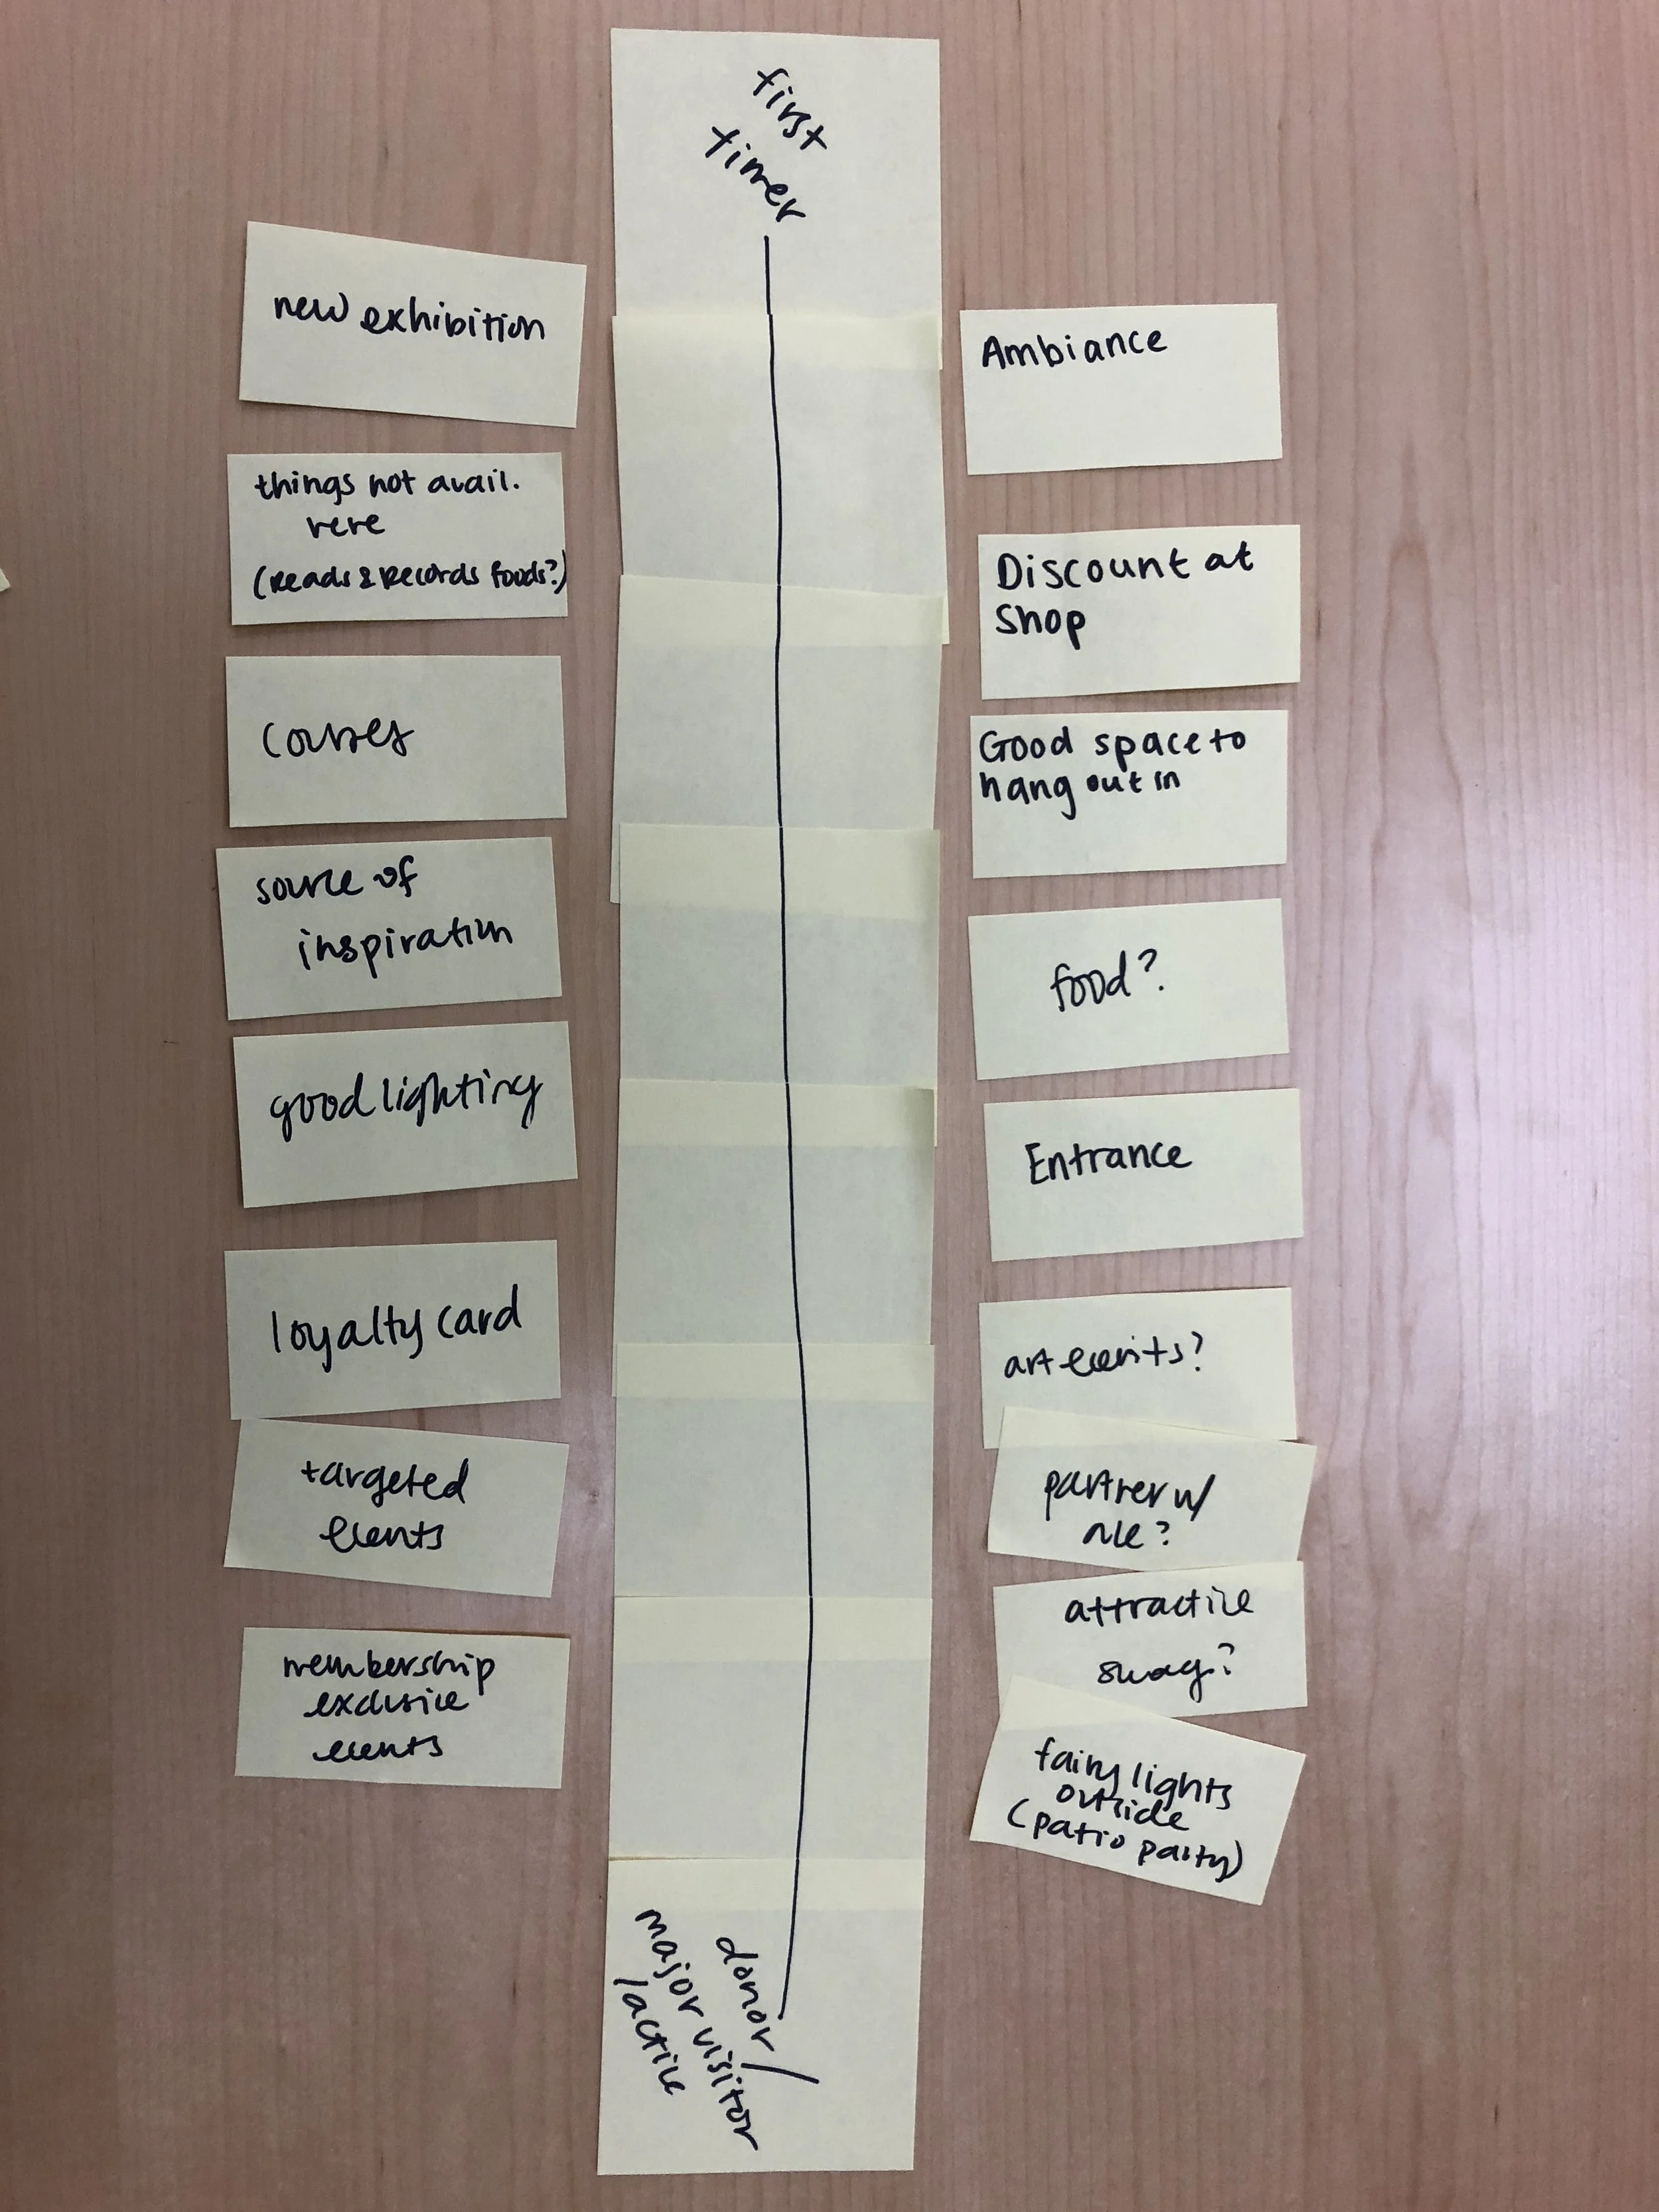 first
timer
new exhibition
things not avail.
here
(Reads & Records foods?)
courses
source of
inspiration
good lighting
loyalty card
targeted
events
membership
exclusive
events
Ambiance
Discount at
shop
Good space to
hang out in
food?
Entrance
art events?
partner w/
attractive
swag?
fairy lights
outside
(patio party)
donor/
major visitor
/active